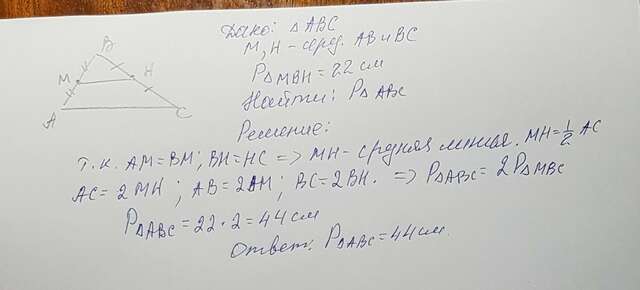 B
M
H
A
C
Дано: △ABC
M, H - серед. AB и BC
P△MBH = 22 см
Найти: P△ABC
Решение:
Т.к. AM=BM; BH=HC => MH - средняя линия. MH=1/2 AC
AC=2MH; AB=2AM; BC=2BH. => P△ABC=2P△MBC
P△ABC=22·2=44см
Ответ: P△ABC=44см.